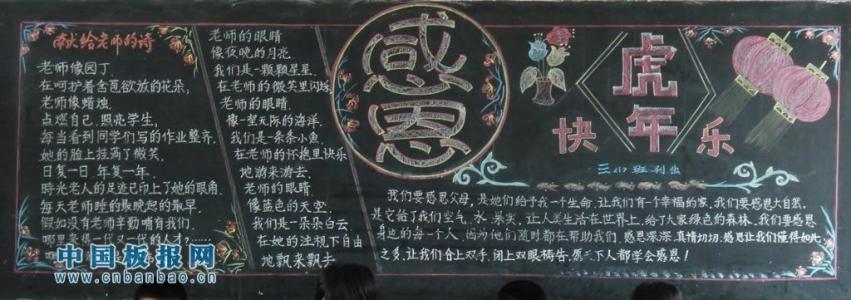 献给老师的诗
老师像园丁,
在呵护着含苞欲放的花朵,
老师像蜡烛,
点燃自己,照亮学生,
每当看到同学们写的作业整齐,
她的脸上挂满了微笑,
日复一日 年复一年,
時光老人的足迹已印上了她的眼角,
每天老师睡的最晚起的最早,
假如没有老师辛勤哺育我们,
老师的眼睛
像夜晚的月亮,
我们是一颗颗星星
在老师的微笑里闪烁,
老师的眼睛,
像一望无际的海洋,
我们是一条条小鱼
在老师的怀抱里快乐
地游来游去
老师的眼睛
像蓝色的天空
我们是一朵朵白云
在她的注视下自由
地飘来飘去
感恩
虎年
快乐
我们要感恩父母,是她们给予我一个生命,让我们有一个幸福的家,我们要感恩大自然,
是它给了我们空气、水、果实,让人类生活在世界上,给了大家绿色的森林,我们要感恩
身边的每一个人,因为他们随时都在帮助我们,感恩深深,真情切切,感恩让我们懂得如此
之多,让我们合上双手,闭上双眼祷告,愿天下人都学会感恩!
中国板报网
www.cnbanbao.cn